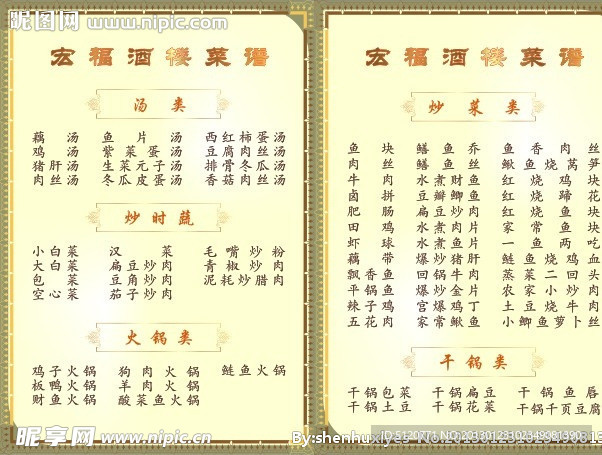 昵图网 www.nipic.com
宏福酒楼菜谱
汤类
藕汤 鱼片汤 西红柿蛋汤
鸡汤 紫菜蛋汤 豆腐肉丝汤
猪肝汤 生菜元子汤 排骨冬瓜汤
肉丝汤 冬瓜皮蛋汤 香菇肉丝汤
炒时蔬
小白菜 汉菜 毛嘴炒粉
大白菜 扁豆炒肉 青椒炒肉
包菜 豆角炒肉 泥耗炒腊肉
空心菜 茄子炒肉
火锅类
鸡子火锅 狗肉火锅 鲢鱼火锅
板鸭火锅 羊肉火锅
财鱼火锅 酸菜鱼火锅
宏福酒楼菜谱
炒菜类
鱼块 鳝鱼乔 鱼香肉丝
肉丝 鳝鱼丝 鳅鱼烧莴笋
牛肉 水煮财鱼 红烧鸡块
卤拼 豆瓣鲫鱼 红烧蹄花
肥肠 扁豆炒肉 红烧鱼块
田鸡 水煮肉片 家常鱼块
虾球 水煮鱼片 一鱼两吃
藕带 爆炒猪肝 鲢鱼烧鸡血
飘香鱼 回锅牛肉 蒸菜二回头
平锅鱼 爆炒金片 农家小炒肉
辣子鸡 宫爆鸡丁 土豆烧牛肉
五花肉 家常鳅鱼 小鲫鱼萝卜丝
干锅类
干锅包菜 干锅扁豆 干锅鱼唇
干锅土豆 干锅花菜 干锅千页豆腐
昵享网 www.nipic.cn
ID:5120771 NO:20130123102349081390